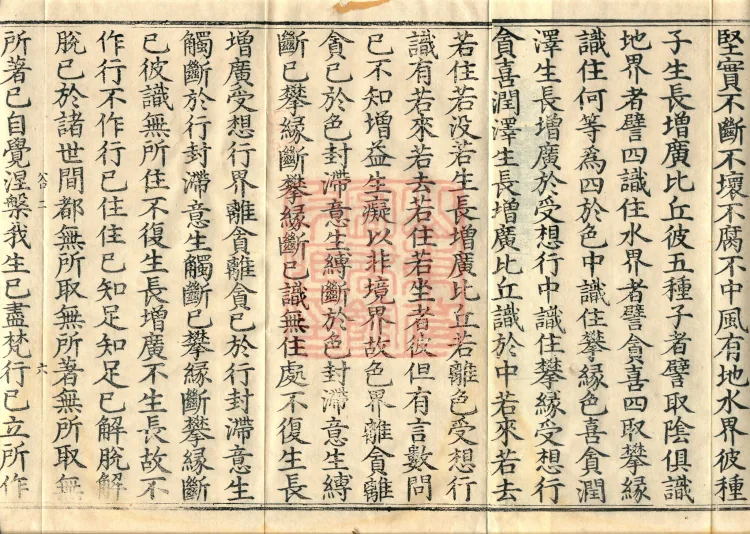 堅實不斷不壞不腐不中風有地水界彼種
子生長增廣比丘彼五種子者譬取陰俱識
地界者譬四識住水界者譬貪喜四取攀緣
識住何等爲四於色中識住攀緣色喜貪潤
澤生長增廣於受想行中識住攀緣受想行
貪喜潤澤生長增廣比丘識於中若來若去
若住若没若生長增廣比丘若離色受想行
識有若來若去若住若坐者彼但有言數問
已不知增益生癡以非境界故色界離貪離
貪已於色封滯意生縛斷於色封滯意生縛
斷已攀緣斷攀緣斷已識無住處不復生長
增廣受想行界離貪離貪已於行封滯意生
觸斷於行封滯意生觸斷已攀緣斷攀緣斷
已彼識無所住不復生長增廣不生長故不
作行不作行已住住已知足知足已解脫解
脫已於諸世間都無所取無所著無所取無
二 六
所著已自覺涅槃我生已盡梵行已立所作